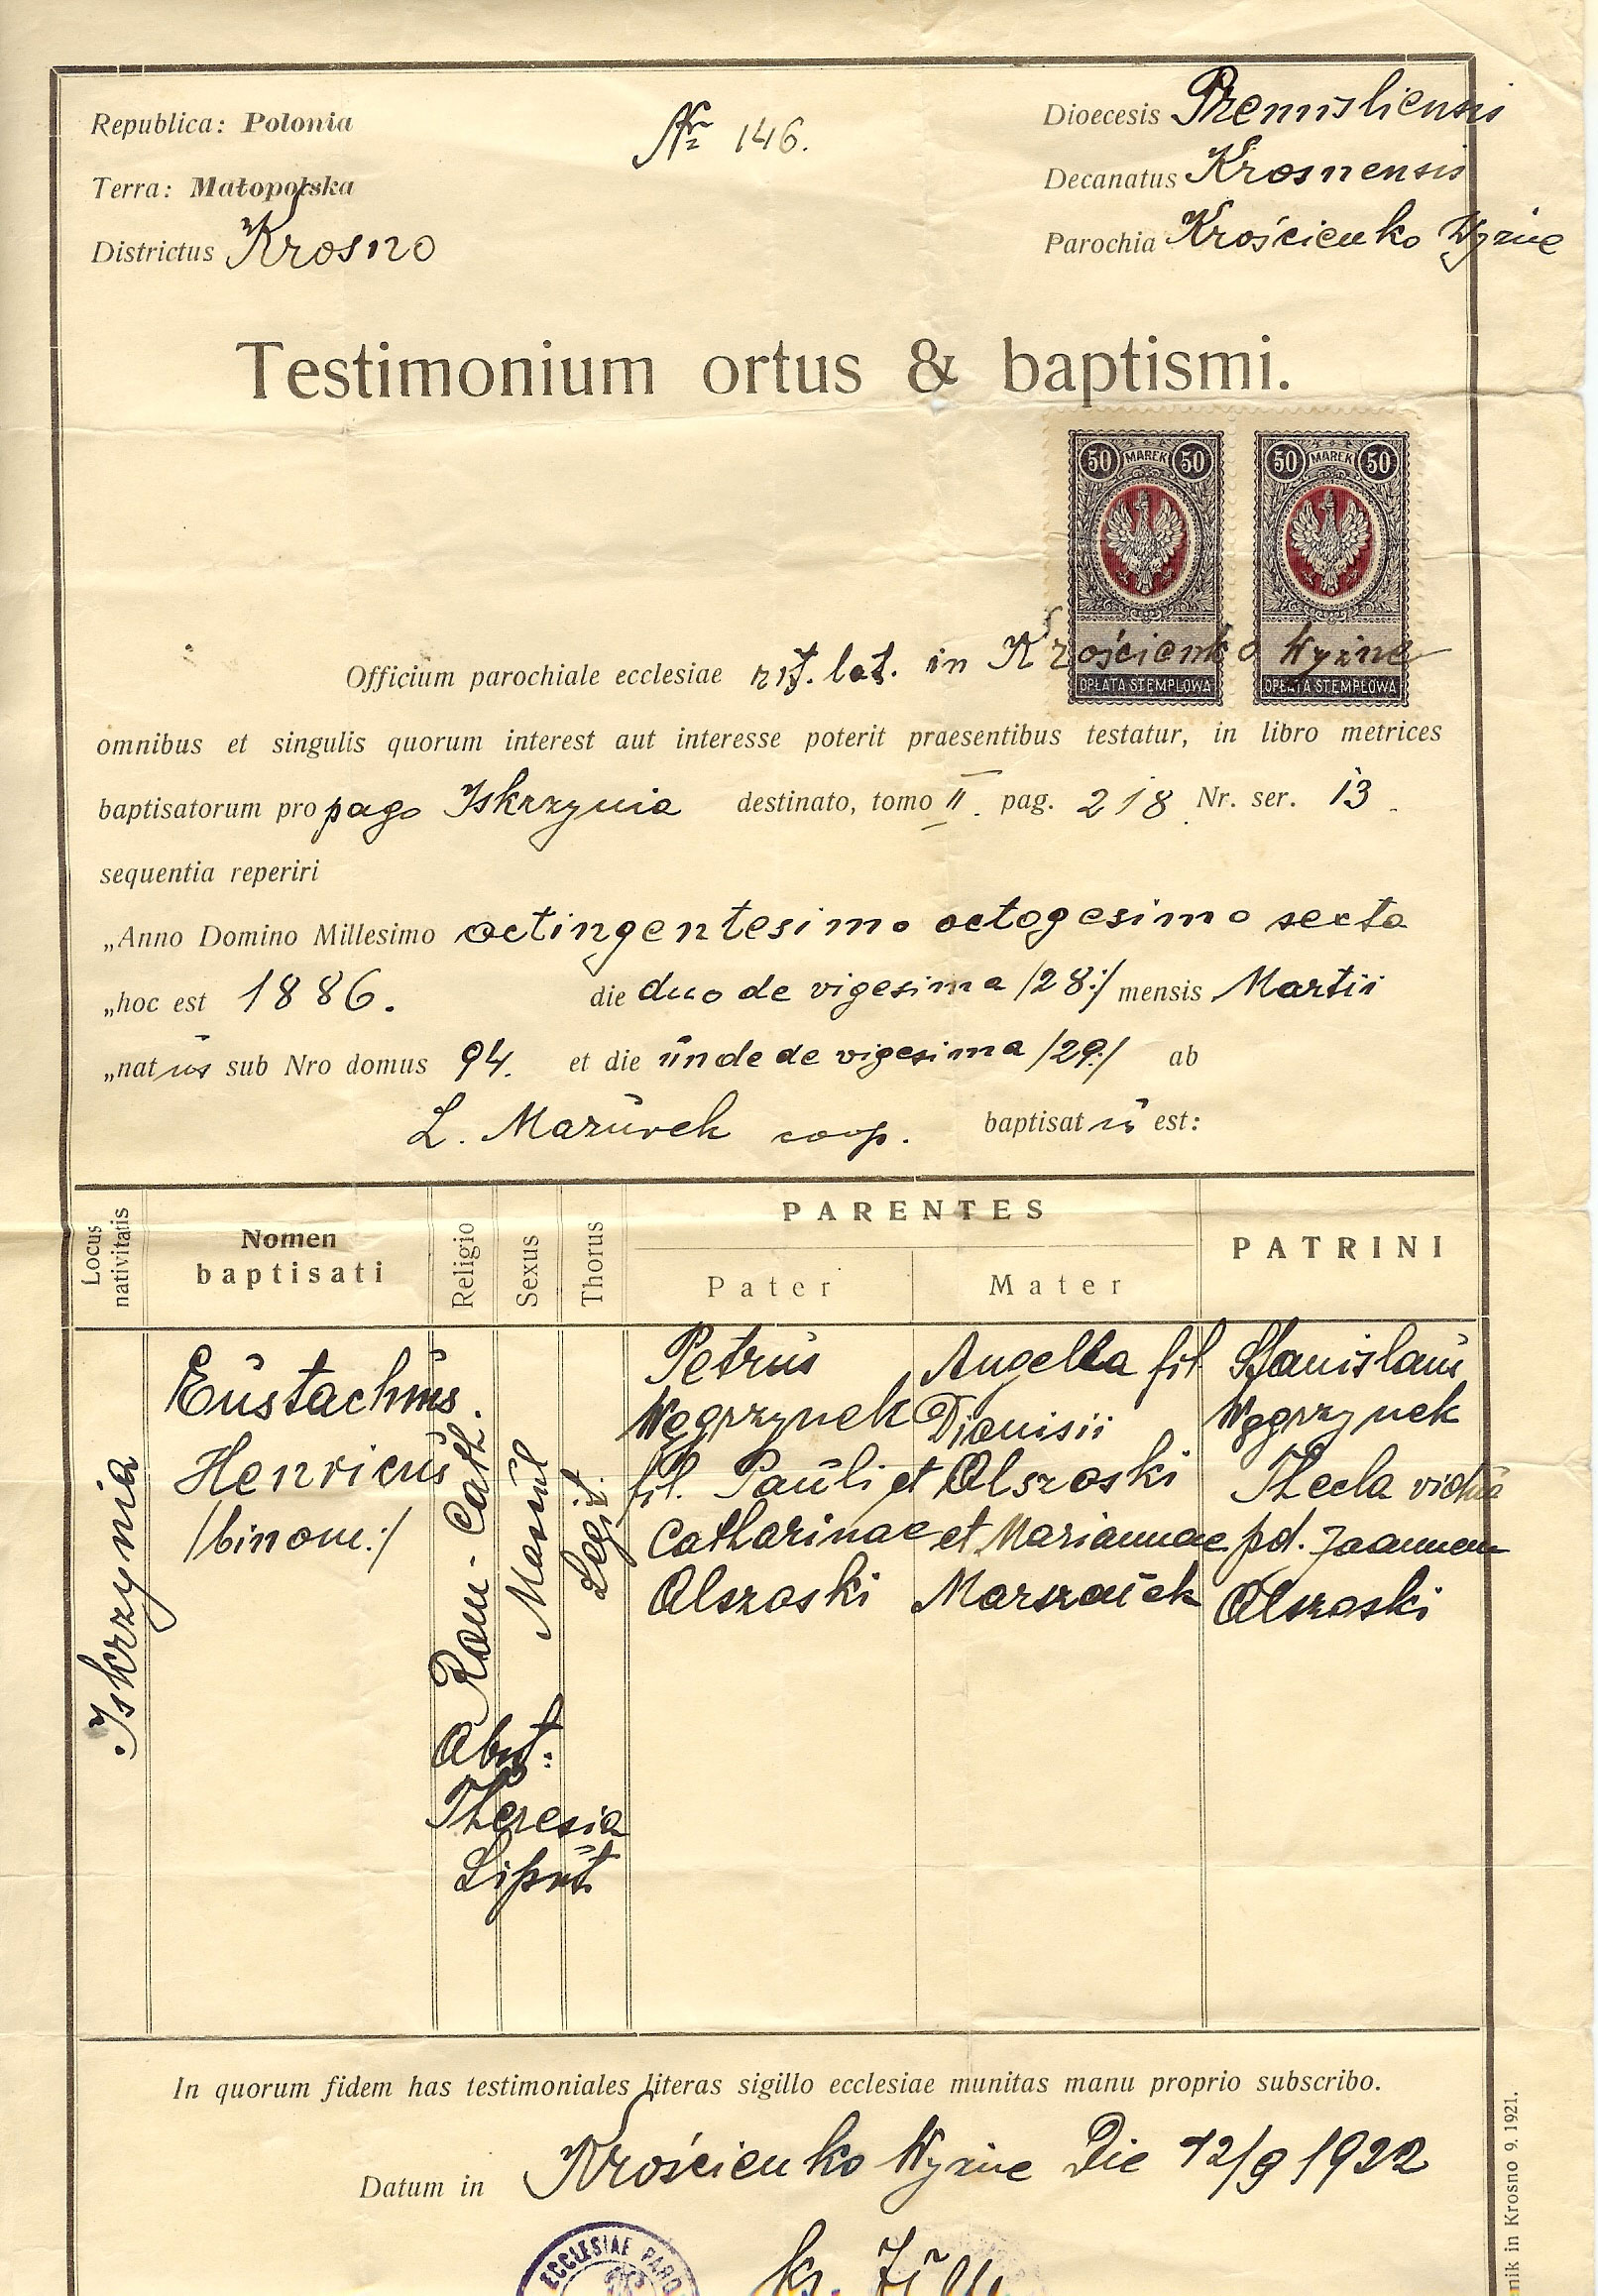 Republica: Polonia
Nr 146.
Dioecesis Premisliensis
Terra: Małopolska
Decanatus Krosnensis
Districtus Krosno
Parochia Krościenko Wyżne
Testimonium ortus & baptismi.
50 MAREK 50
50 MAREK 50
Officium parochiale ecclesiae rit. lat. in Krościenko Wyżne
OPŁATA STEMPLOWA
OPŁATA STEMPLOWA
omnibus et singulis quorum interest aut interesse poterit praesentibus testatur, in libro metrices
baptisatorum pro pago Iskrzynia destinato, tomo II. pag. 218 Nr. ser. 13.
sequentia reperiri
„Anno Domino Millesimo octingentesimo octogesimo sexto
„hoc est 1886. die duo de vigesima /28:/ mensis Martii
„natus sub Nro domus 94. et die unde de vigesima /29:/ ab
L. Mazurek coop. baptisatus est:
Locus nativitatis
Nomen baptisati
Religio
Sexus
Thorus
PARENTES
Pater
Mater
PATRINI
Iskrzynia
Eustachius.
Henricus
/binom:/
Rom-Cath.
Mascul
Legit.
Obst:
Theresia
Liput.
Petrus
Węgrzynek
fil. Pauli et
Catharinae
Olszoski
Angella fil
Dionisii
Olszoski
et Mariannae
Marszałek
Stanislaus
Węgrzynek
Thecla vidua
pd. Joannem
Olszoski
In quorum fidem has testimoniales literas sigillo ecclesiae munitas manu proprio subscribo.
Datum in Krościenko Wyżne Die 12/9 1922
ECCLESIAE PARO
nik in Krosno 9. 1921.